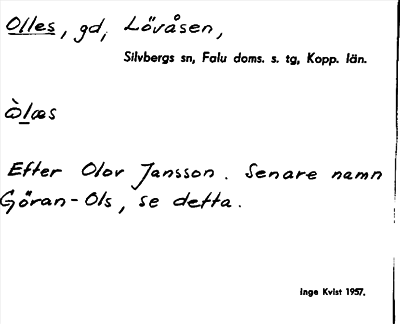 Olles, gd, Lövåsen,
Silvbergs sn, Falu doms. s. tg, Kopp. län.
ò̲læs
Efter Olov Jansson. Senare namn
Göran-Ols, se detta.
Inge Kvist 1957.